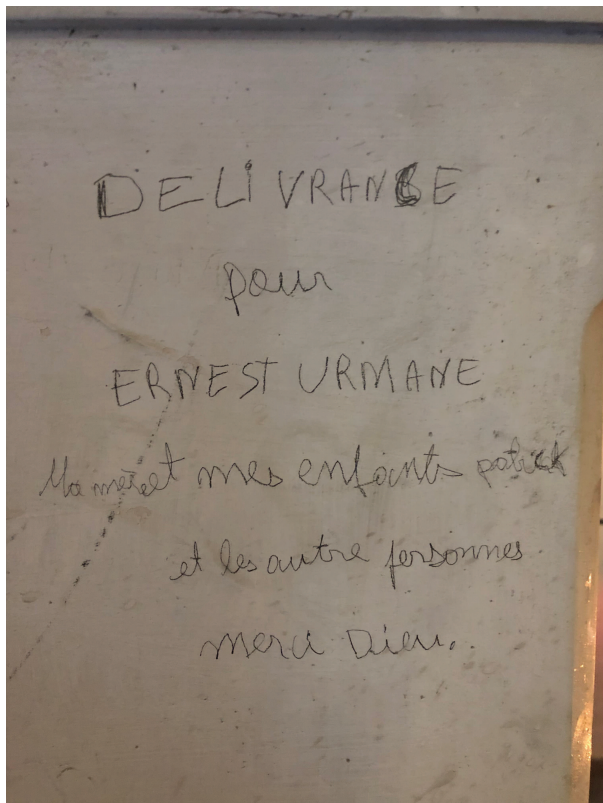 DELIVRANCE
pour
ERNEST URMANE
Ma mère et mes enfants patrick
et les autre personnes
merci Dieu.